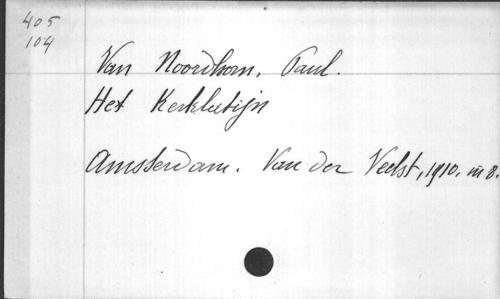 405
104
Van Noordhorn, Paul.
Het Kerklatijn
Amsterdam. Van der Veelst, 1910. in 8.